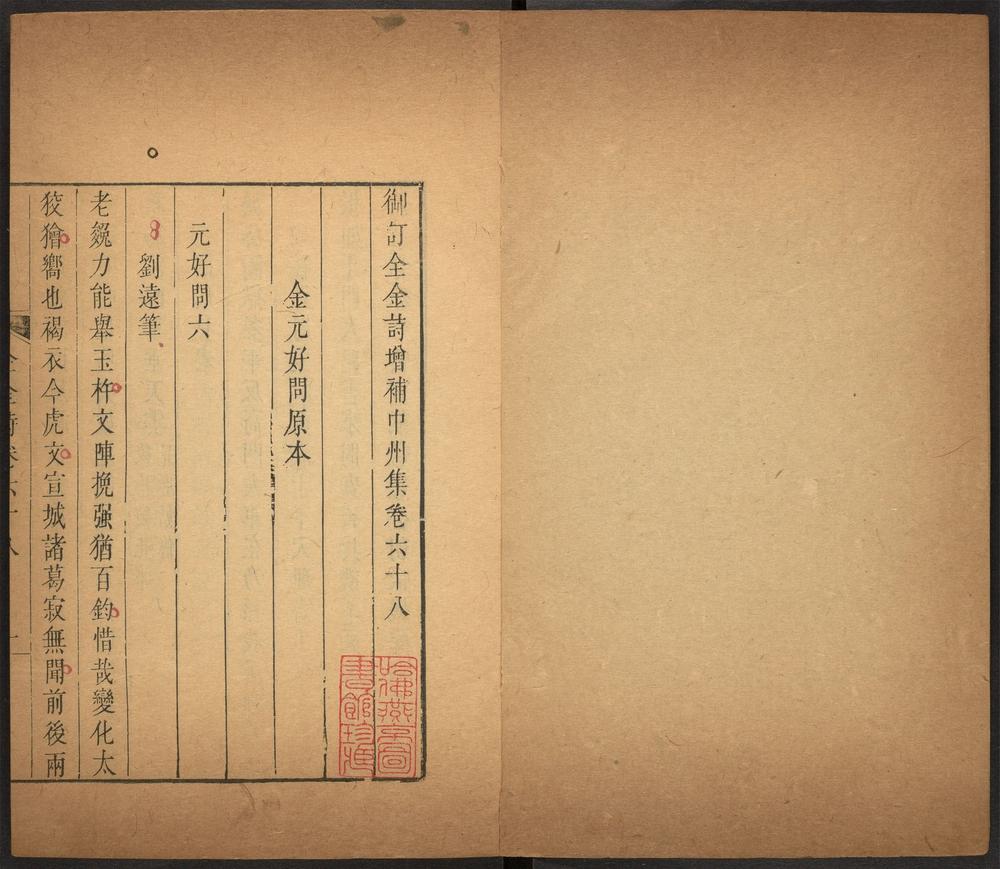 御訂全金詩增補中州集卷六十八
金元好問原本
元好問六
劉遠筆
老㕙力能舉玉杵文陣挽强猶百鈞惜哉變化太
狡獪嚮也褐衣今虎文宣城諸葛寂無聞前後兩
哈佛燕京圖
書館珍藏